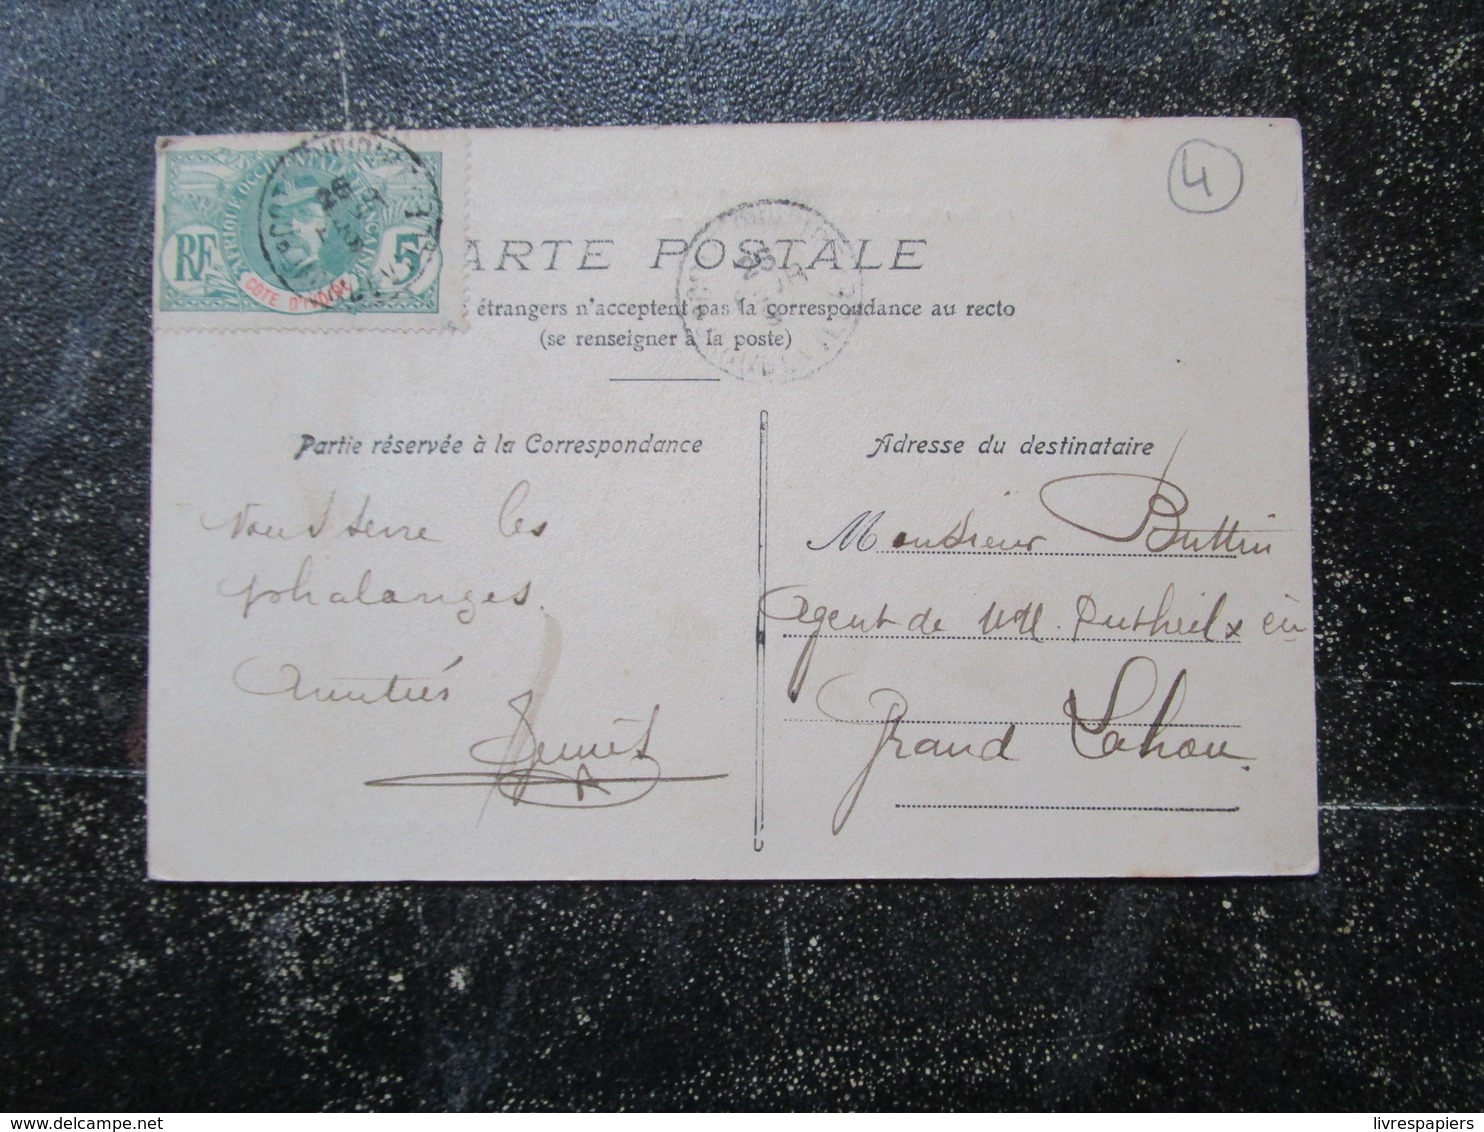 4
AFRIQUE OCCIDENTALE FRANÇAISE
RF 5
CÔTE D'IVOIRE
ARTE POSTALE
étrangers n'acceptent pas la correspondance au recto
(se renseigner à la poste)
Partie réservée à la Correspondance
Adresse du destinataire
Vous serre les
phalanges.
Amitiés
Monsieur Buttin
Agent de MM. Dutheil &
Grand Lahou.
livrespapiers